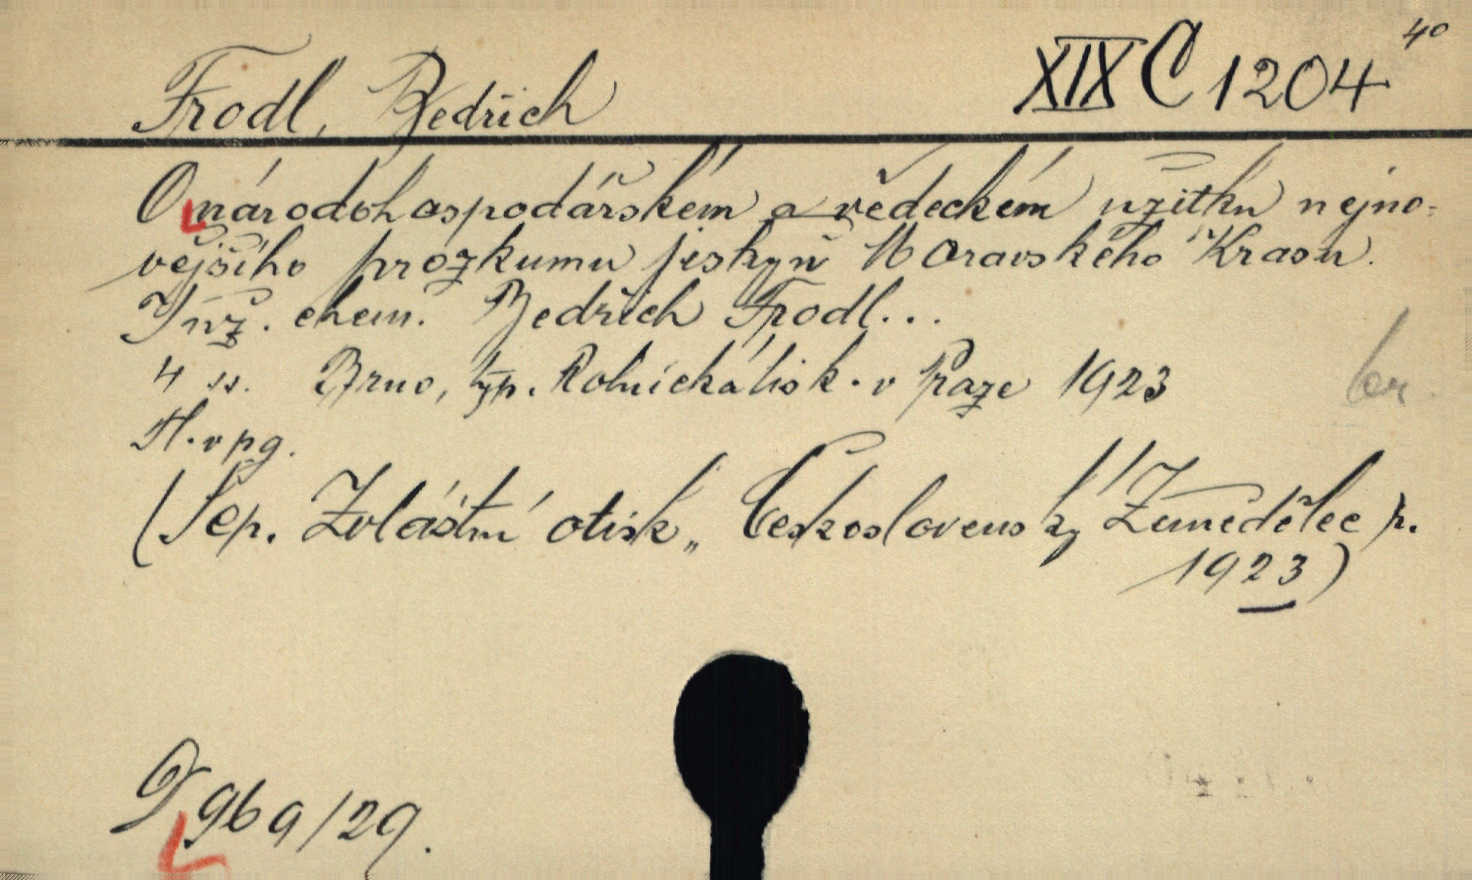 XIX C 1204 4°
Frodl, Bedřich
O národohospodářském a vědeckém užitku nejno-
vějšího prozkumu jeskyň Moravského Krasu.
Inž. chem. Bedřich Frodl...
4 ss. Brno, typ. Rolnická tisk. v Praze 1923
H. v pg.
(Sep. Zvláštní otisk „ Československý Zemědělec r.
1923)
D 969/29.